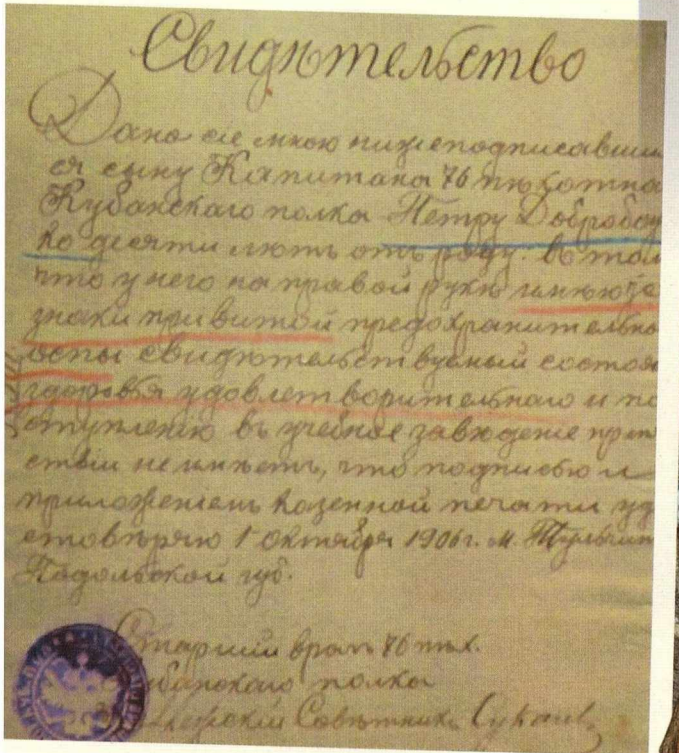 Свидѣтельство
Дано сіе мною нижеподписавши
ся сыну Капитана 76 пѣхотна
Кубанскаго полка Петру Доброво
ко десяти лѣтъ отъ роду. въ том
что у него на правой рукѣ имѣются
знаки привитой предохранительно
оспы свидѣтельствуемый состоя
здоровья удовлетворительнаго и по
ступленію въ учебное заведеніе преп
ствій не имѣетъ, что подписью и
приложеніемъ казенной печати уд
стовѣряю 1 Октября 1906 г. м. Тульчин
Подольской губ.
Старшій врачъ 76 пѣх.
Кубанскаго полка
Совѣтникъ